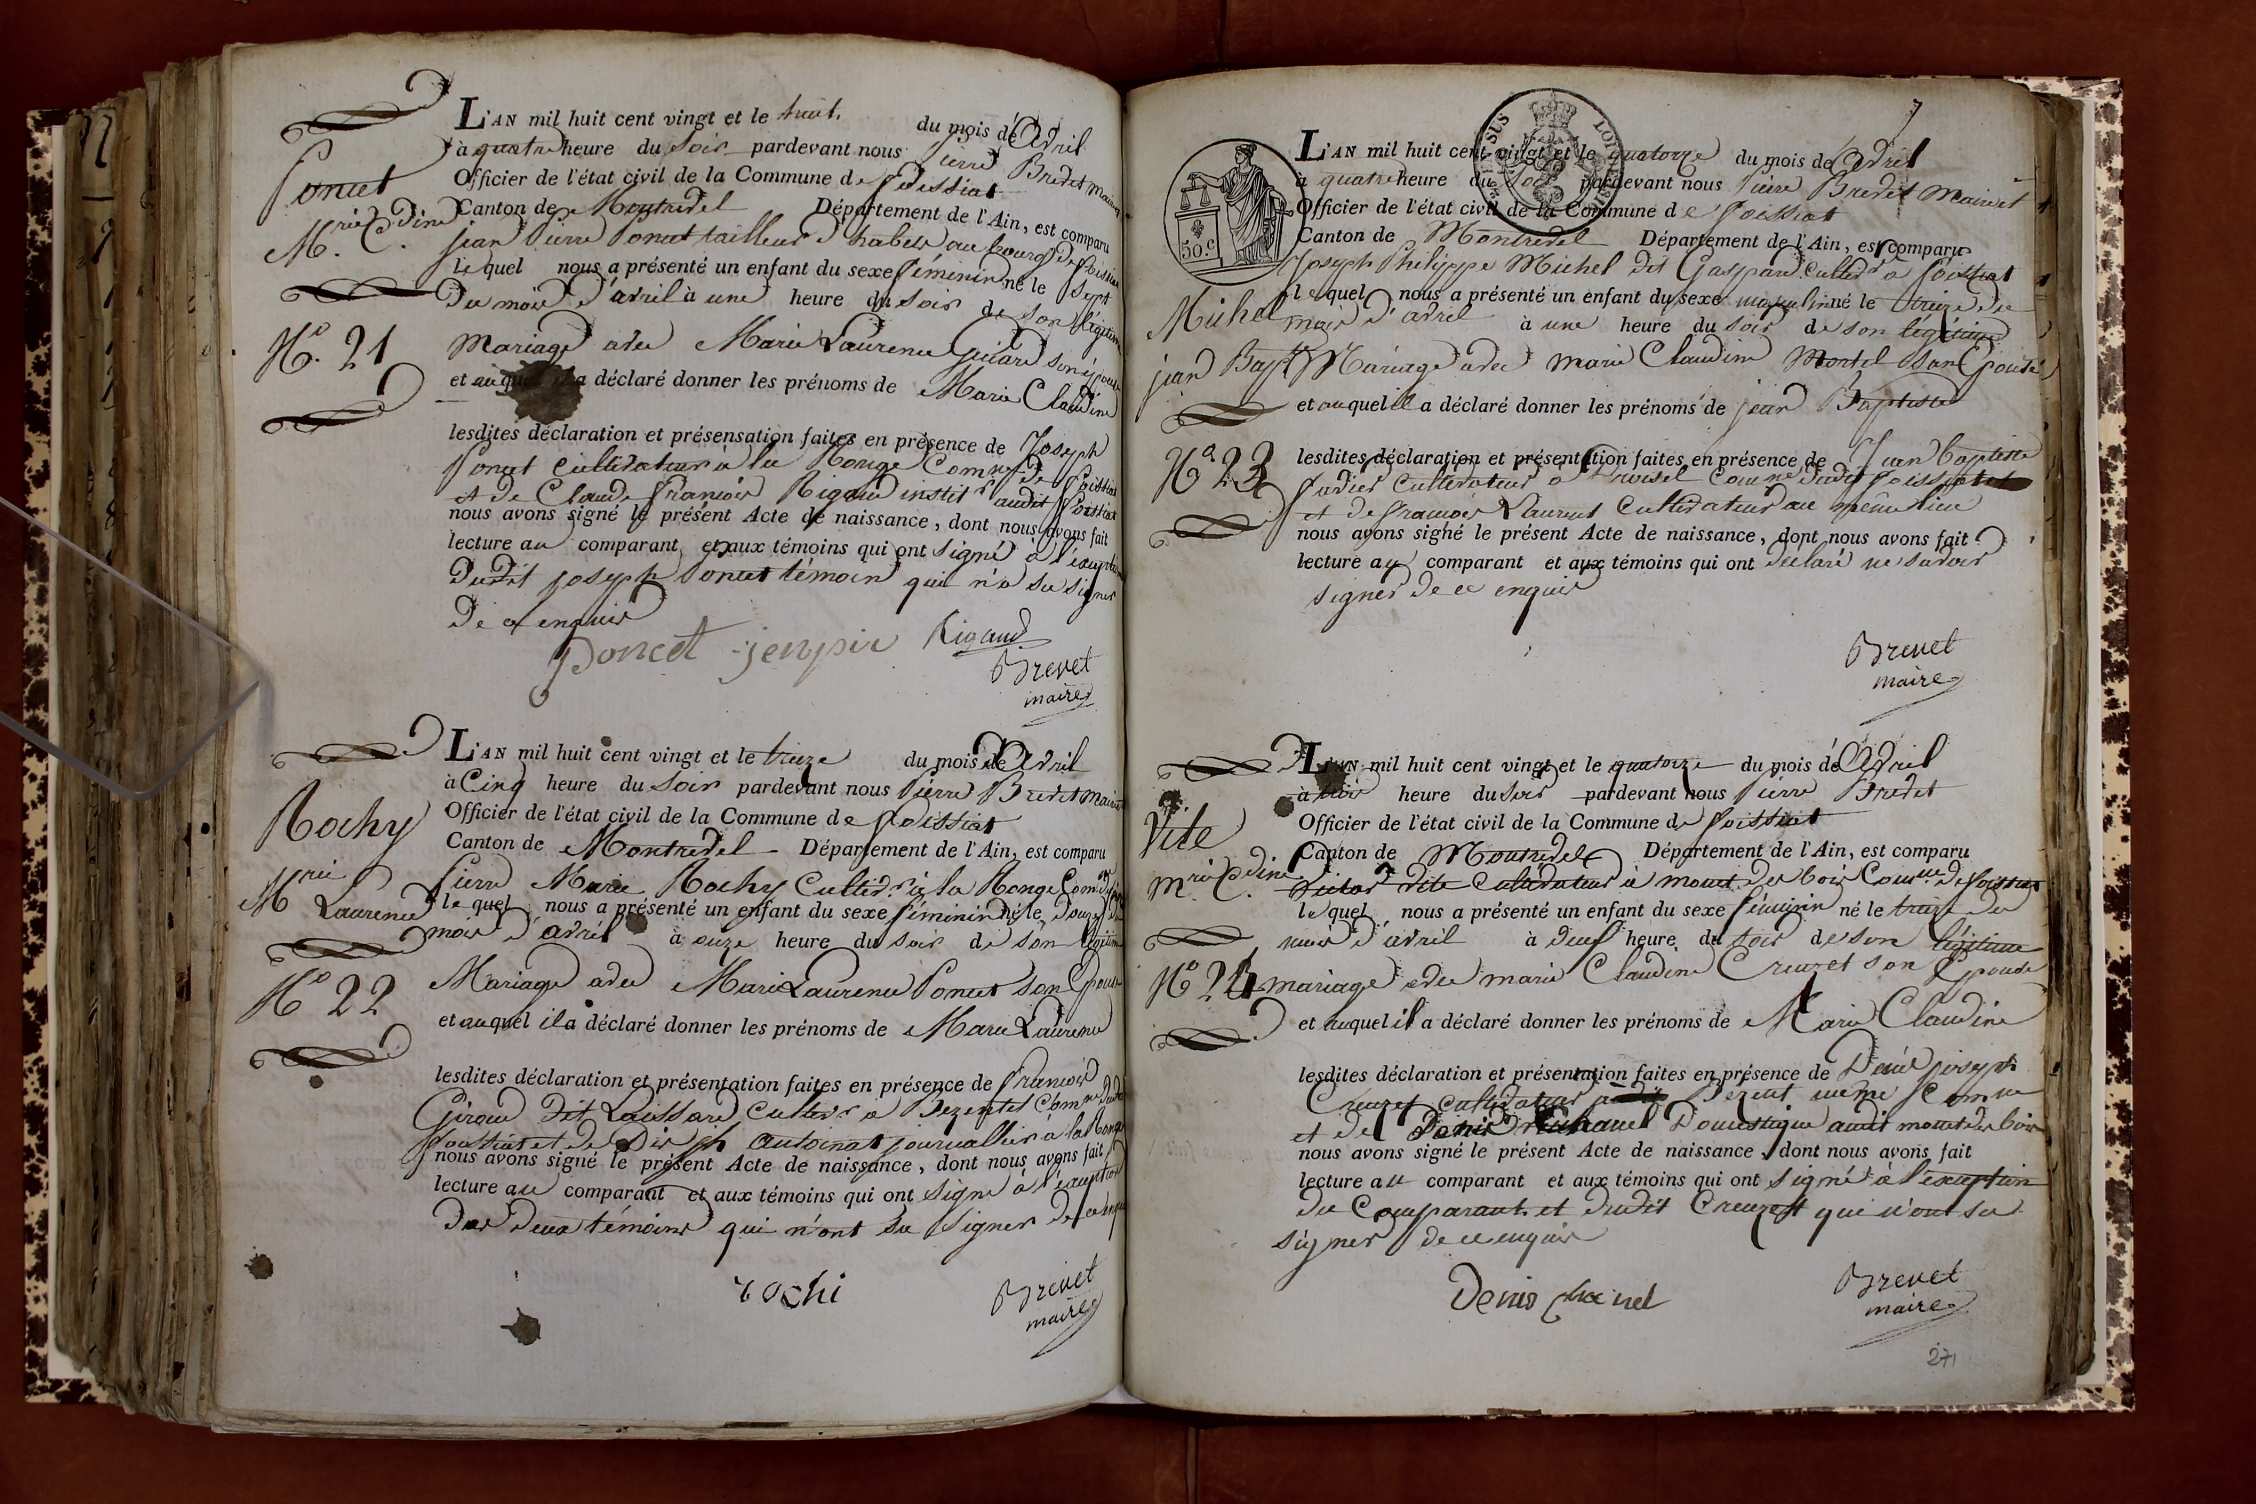 L'AN mil huit cent vingt et le huit du mois de Avril
à quatre heure du soir pardevant nous Pierre Brevet maire
Officier de l'état civil de la Commune de Poissiat
Canton de Montrevel Département de l'Ain, est comparu
Poncet
M.rie C.dine
N.o 21
jean Pierre Poncet tailleur d'habits au bourg de Poissiat
lequel nous a présenté un enfant du sexe féminin né le sept
du mois d'avril à une heure du soir de son légitime
mariage avec Marie Laurence son épouse
et auquel il a déclaré donner les prénoms de Marie Claudine
lesdites déclaration et présensation faites en présence de Joseph
Poncet cultivateur à la Ronge Comne de Poissiat
et de Claude François Rigaud instit.r audit Poissiat
nous avons signé le présent Acte de naissance, dont nous avons fait
lecture au comparant et aux témoins qui ont signé à l'exception
dudit joseph Poncet témoin qui n'a su signer
de ce enquis
Poncet jenpir Rigaud
Brevet
maire
L'AN mil huit cent vingt et le treize du mois de Avril
à Cinq heure du soir pardevant nous Pierre Brevet maire
Officier de l'état civil de la Commune de Poissiat
Canton de Montrevel Département de l'Ain, est comparu
Rochy
M.rie
Laurence
N.o 22
Pierre Marie Rochy Cultiv.r à la Ronge Com.ne
lequel nous a présenté un enfant du sexe féminin né le douze du
mois d'avril à onze heure du soir de son légitime
Mariage avec Marie Laurence Poncet son Epouse
et auquel il a déclaré donner les prénoms de Marie Laurence
lesdites déclaration et présentation faites en présence de François
Giroud dit Laissard cultiv.r a Bezentet Com.ne dudit
Poissiat et de journallier à la Ronge
nous avons signé le présent Acte de naissance, dont nous avons fait
lecture au comparant et aux témoins qui ont signé à l'exception
des deux témoins qui n'ont su signer de ce enquis
rochi
Brevet
maire
7
50.c
L'AN mil huit cent vingt et le quatorze du mois de Avril
à quatre heure du soir pardevant nous Pierre Brevet maire et
Officier de l'état civil de la Commune de Poissiat
Canton de Montrevel Département de l'Ain, est comparu
Michel
jean Bap.te
N.o 23
Joseph Philippe Michel dit Gaspard Cultiv.r a Poissiat
lequel nous a présenté un enfant du sexe masculin né le treize du
mois d'avril à une heure du soir de son légitime
Mariage avec marie Claudine Montel son Epouse
et auquel il a déclaré donner les prénoms de jean Baptiste
lesdites déclaration et présentation faites en présence de Jean baptiste
cultivateur a Com.ne dudit Poissiat
et de françois Laurent Cultivateur au même lieu
nous avons signé le présent Acte de naissance, dont nous avons fait
lecture au comparant et aux témoins qui ont déclaré ne savoir
signer de ce enquis
Brevet
maire
L'AN mil huit cent vingt et le quatorze du mois de Avril
à trois heure du soir pardevant nous Pierre Brevet
Officier de l'état civil de la Commune de Poissiat
Canton de Montrevel Département de l'Ain, est comparu
Vite
M.rie C.dine
N.o 24
Victor Vite Cultivateur à mont des bois Com.ne de Poissiat
lequel nous a présenté un enfant du sexe féminin né le treize du
mois d'avril à deux heure du soir de son légitime
mariage avec marie Claudine Creuzet son Epouse
et auquel il a déclaré donner les prénoms de Marie Claudine
lesdites déclaration et présentation faites en présence de Denis joseph
Creuzet cultivateur a même Com.ne
et de Denis Domestique audit mont des bois
nous avons signé le présent Acte de naissance, dont nous avons fait
lecture au comparant et aux témoins qui ont signé à l'exception
du Comparant et dudit Creuzet qui n'ont su
signer de ce enquis
Denis
Brevet
maire
271